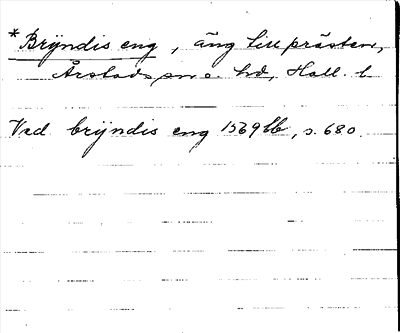 * Brÿndis eng, äng till prästen,
Årstads sn o. hd, Hall. l.
Ved brÿndis eng 1569 Lb, s. 680.